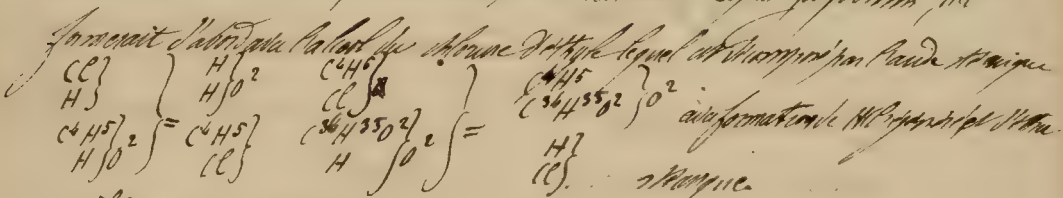 formerait d'abord avec l'alcool du chlorure d'éthyle lequel est décomposé par l'acide stéarique
Cl} H} C⁴H⁵} C⁴H⁵}
H} H}O² Cl} C³⁶H³⁵O²}O² avec formation de HCl
C⁴H⁵} = C⁴H⁵} C³⁶H³⁵O²} = H}
H}O² Cl} H}O² Cl}. stéarique.